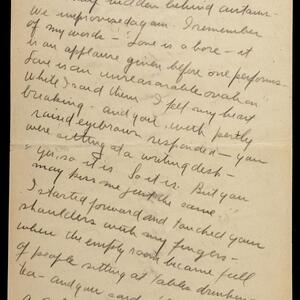 hidden behind curtains -
We improvised again. I remember
of my words - "Love is a bore - it
is an applause given before one performs -
Love is an unreasonable ovation."
While I said them I felt my heart
breaking - and you, with pertly
raised eyebrows responded - you
were sitting at a writing desk -
"Yes, so it is. So it is. But you
may kiss me just the same."
I started forward and touched your
shoulders with my fingers -
when the empty room became full
of people sitting at tables drinking
tea - and you said